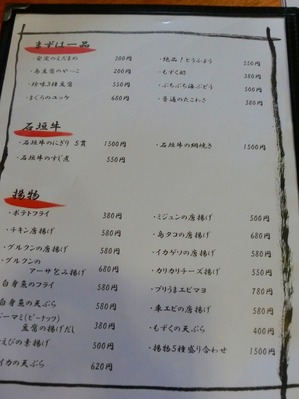 まずは一品
・定番のえだまめ 200円
・島豆腐のやっこ 200円
・珍味3種豆腐 550円
・まぐろのユッケ 680円
・絶品！とうふよう 350円
・もずく酢 380円
・ぷちぷち海ぶどう 500円
・普通のたこわさ 380円
石垣牛
・石垣牛のにぎり 5貫 1500円
・石垣牛のすじ煮 550円
・石垣牛の網焼き 1500円
揚物
・ポテトフライ 380円
・チキン唐揚げ 580円
・グルクンの唐揚げ 580円
・グルクンの
アーサ包み揚げ 680円
白身魚のフライ 580円
白身魚の天ぷら 580円
ジーマミ(ピーナッツ)
豆腐の揚げだし 380円
えびの素揚げ 500円
イカの天ぷら 620円
・ミジュンの唐揚げ 500円
・島タコの唐揚げ 680円
・イカゲソの唐揚げ 580円
・カリカリチーズ揚げ 550円
・プリうまエビマヨ 780円
・車エビの唐揚げ 580円
・もずくの天ぷら 400円
・揚物5種盛り合わせ 1500円